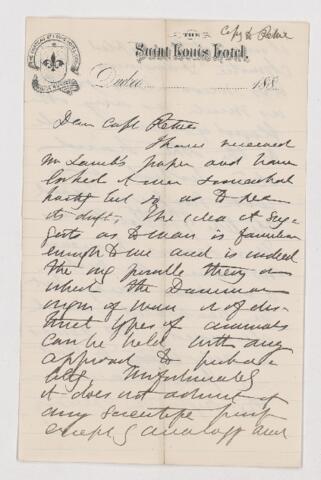 Copy to Peter
THE
Saint Louis Hotel,
Quebec 188
Dear Capt Peter
I have received
Mr Lamb's paper and have
looked it over somewhat
hastily but so as to see
its drift. The idea it sug-
gests as to man is familiar
enough to me and is indeed
the only possible theory on
which the Darwinian
origin of man or of dis-
tinct types of animals
can be held with any
approach to proba-
bility. Unfortunately
it does not admit of
any scientific proof
except by analogy and